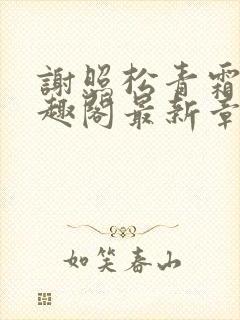 謝照松青霜
趣閣最新章
如笑春山